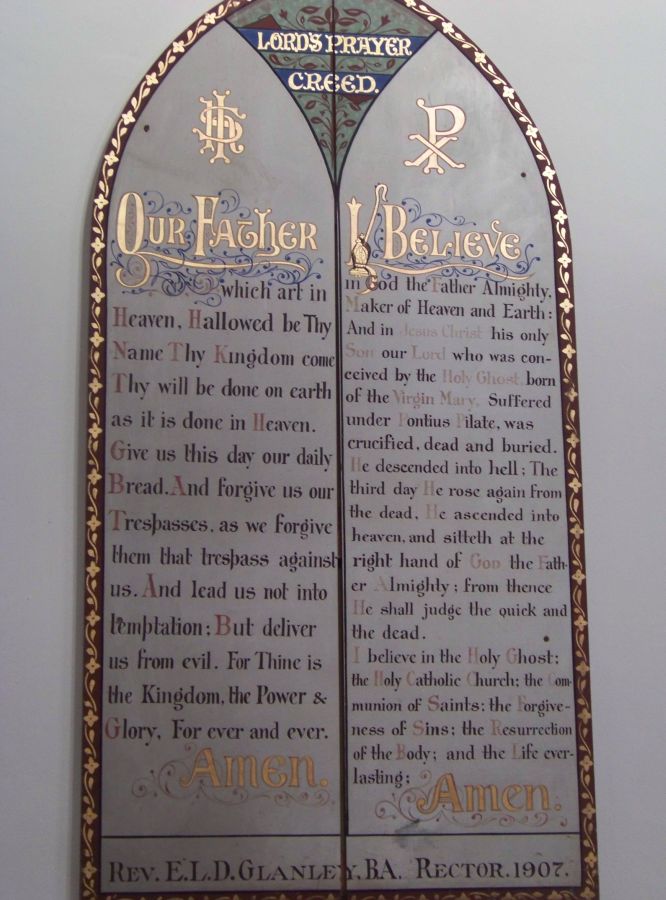 LORD'S PRAYER
CREED.
IHS
OUR FATHER
which art in
Heaven, Hallowed be Thy
Name Thy Kingdom come
Thy will be done on earth
as it is done in Heaven.
Give us this day our daily
Bread. And forgive us our
Trespasses, as we forgive
them that trespass against
us. And lead us not into
temptation: But deliver
us from evil. For Thine is
the Kingdom, the Power &
Glory, For ever and ever.
AMEN.
I BELIEVE
in God the Father Almighty,
Maker of Heaven and Earth:
And in Jesus Christ his only
Son our Lord who was con-
ceived by the Holy Ghost, born
of the Virgin Mary, Suffered
under Pontius Pilate, was
crucified, dead and buried.
He descended into hell; The
third day He rose again from
the dead, He ascended into
heaven, and sitteth at the
right hand of God the Fath-
er Almighty; from thence
He shall judge the quick and
the dead.
I believe in the Holy Ghost;
the Holy Catholic Church; the Com-
munion of Saints; the Forgive-
ness of Sins; the Resurrection
of the Body; and the Life ever-
lasting;
AMEN.
REV. E.L.D. GLANLEY, B.A. RECTOR. 1907.